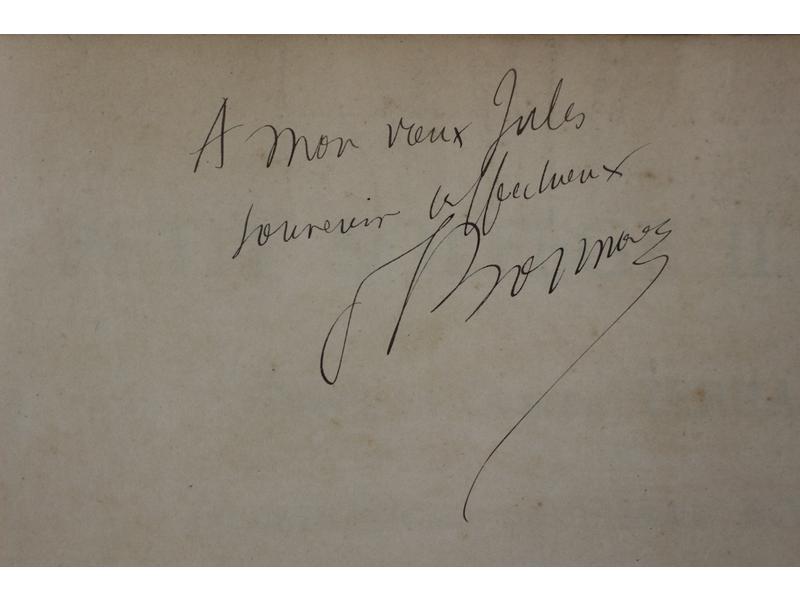 A mon vieux Jules
souvenir affectueux